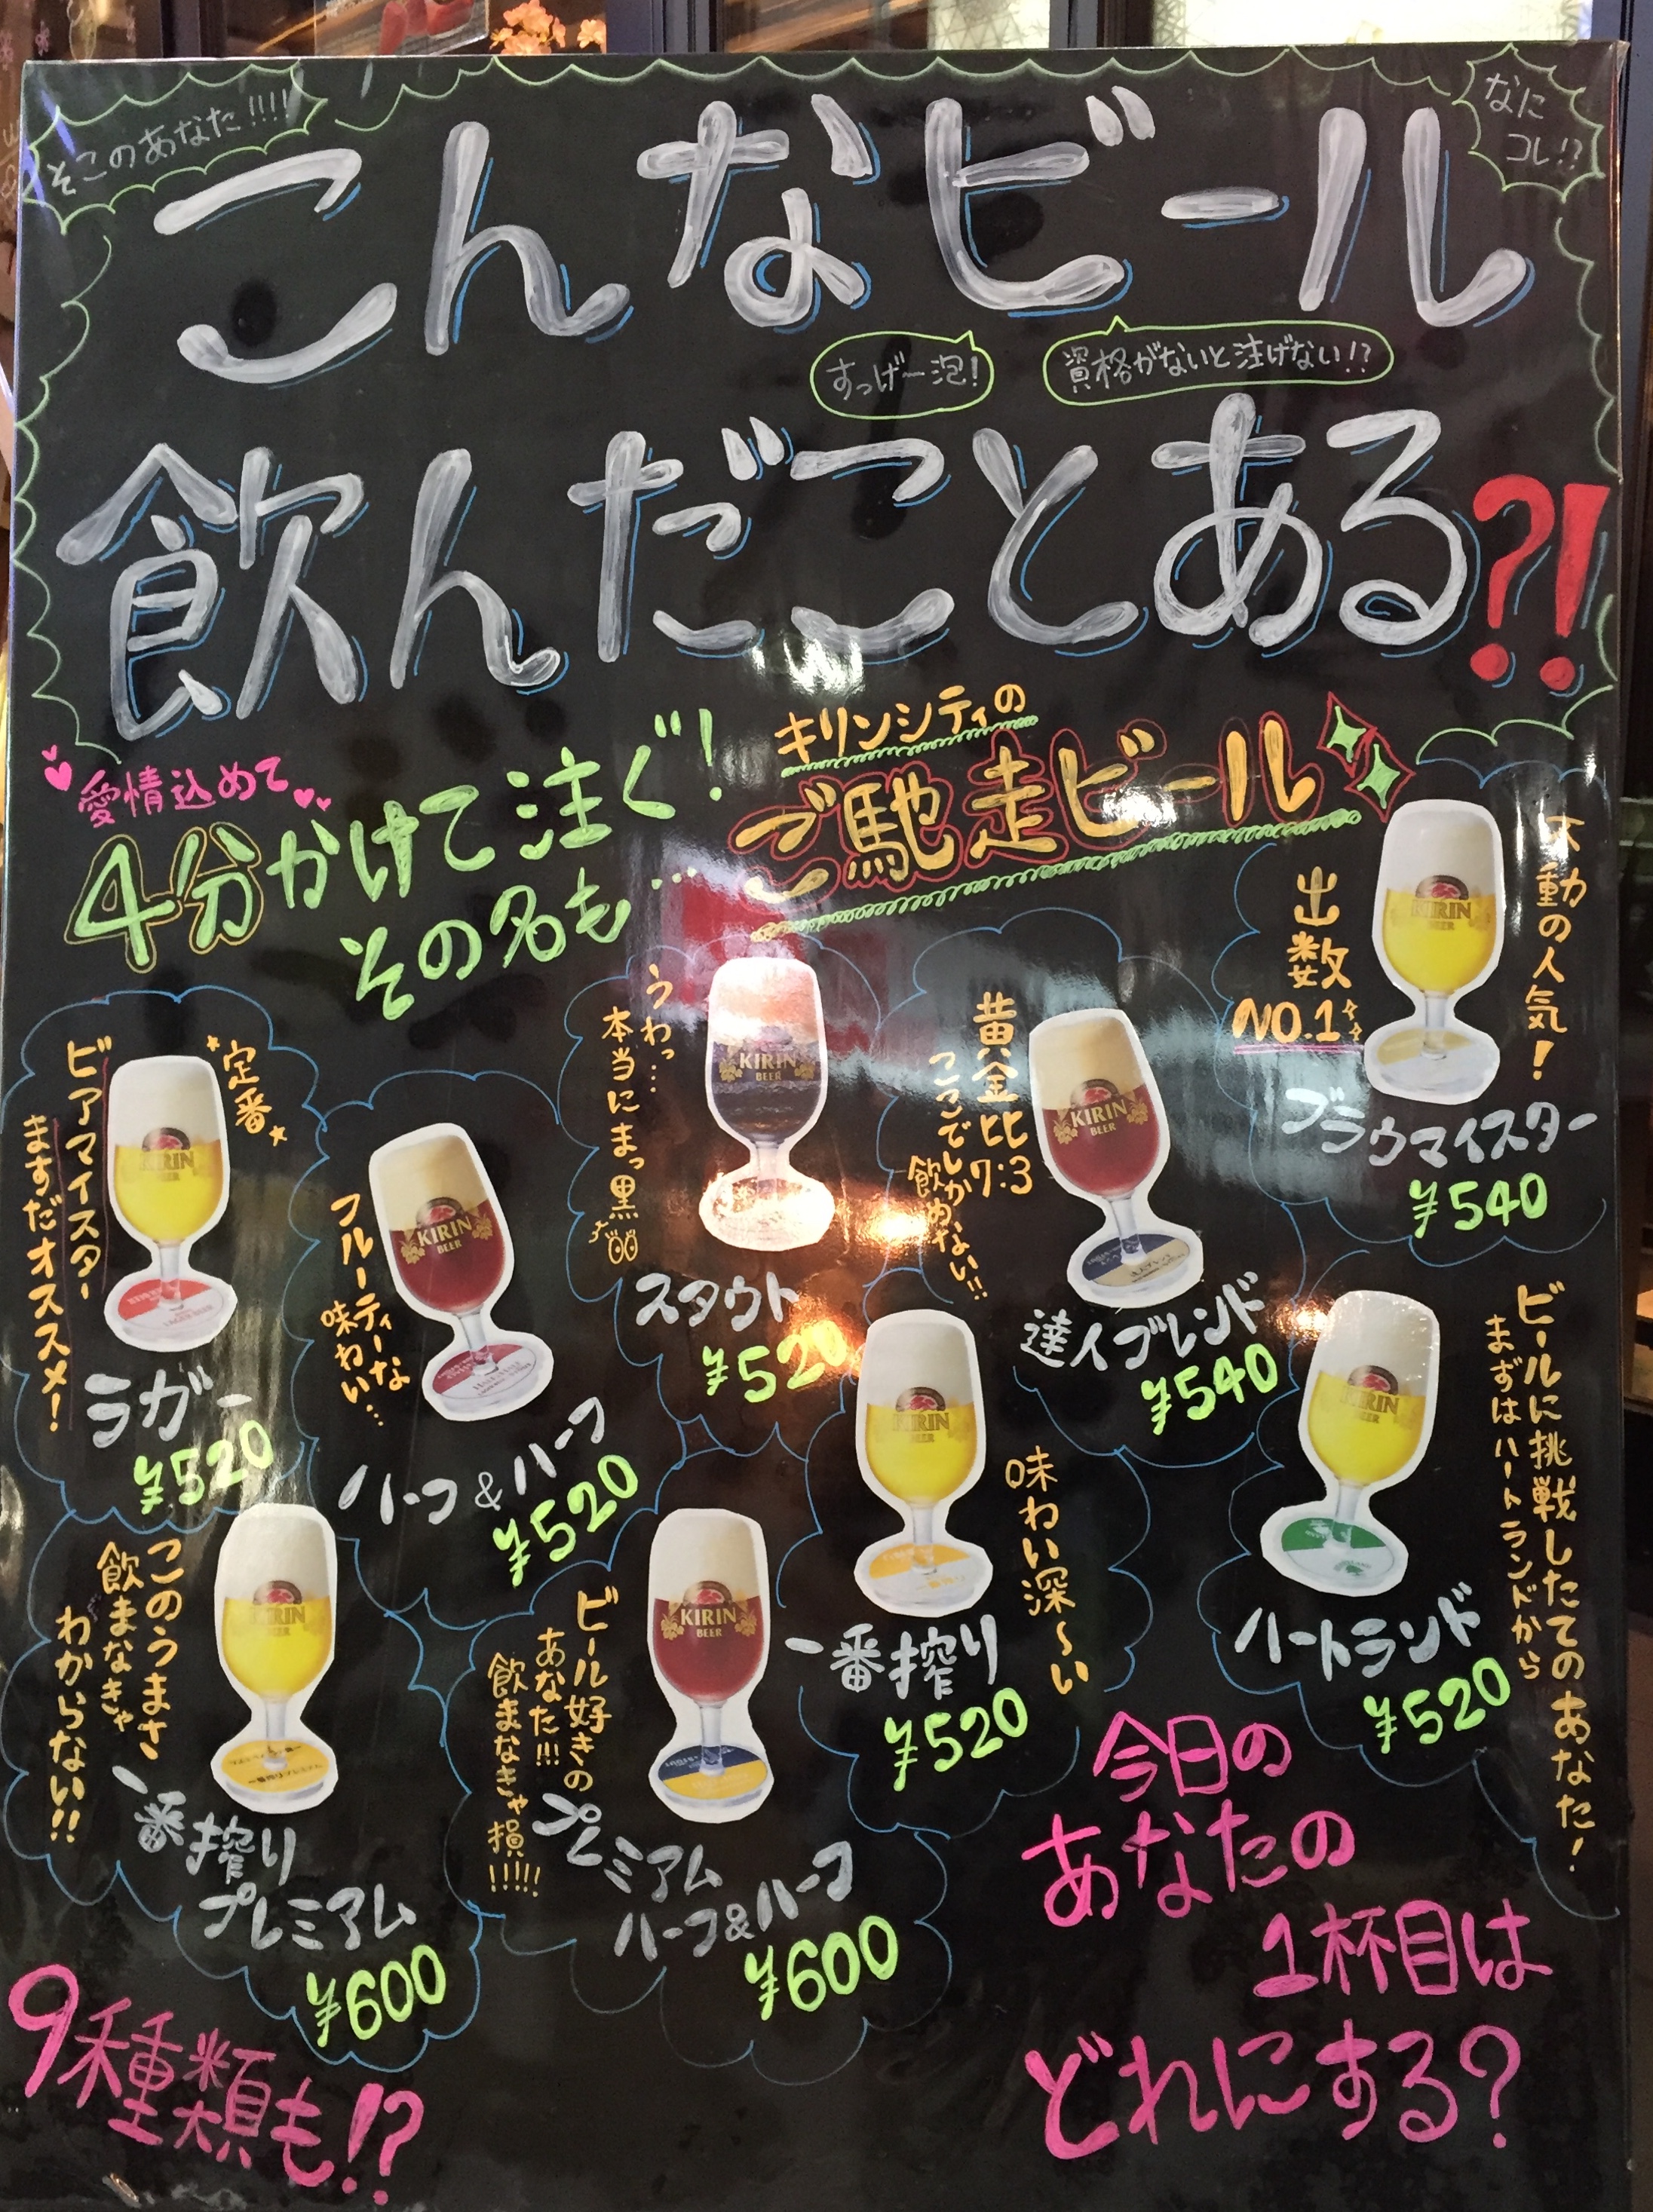 そこのあなた!!!!
なに
コレ!?
こんなビール
すっげー泡!
資格がないと注げない!?
飲んだことある?!
愛情込めて
4分かけて注ぐ!
その名も…
キリンシティの
ご馳走ビール
定番
ビアマイスター
ますだオススメ!
KIRIN
BEER
ラガー
¥520
フルーティーな
味わい…
KIRIN
BEER
ハーフ&ハーフ
¥520
うわっ…
本当にまっ黒
KIRIN
BEER
スタウト
¥520
黄金比
7:3
ここでしか
飲めない!!
KIRIN
BEER
達人ブレンド
¥540
不動の人気!
出数
NO.1
KIRIN
BEER
ブラウマイスター
¥540
このうまさ
飲まなきゃ
わからない!!
KIRIN
BEER
一番搾り
プレミアム
¥600
ビール好きの
あなた!!!
飲まなきゃ損!!!!!
KIRIN
BEER
プレミアム
ハーフ&ハーフ
¥600
味わい深〜い
KIRIN
BEER
一番搾り
¥520
ビールに挑戦したてのあなた!
まずはハートランドから
KIRIN
BEER
ハートランド
¥520
9種類も!?
今日の
あなたの
1杯目は
どれにする?